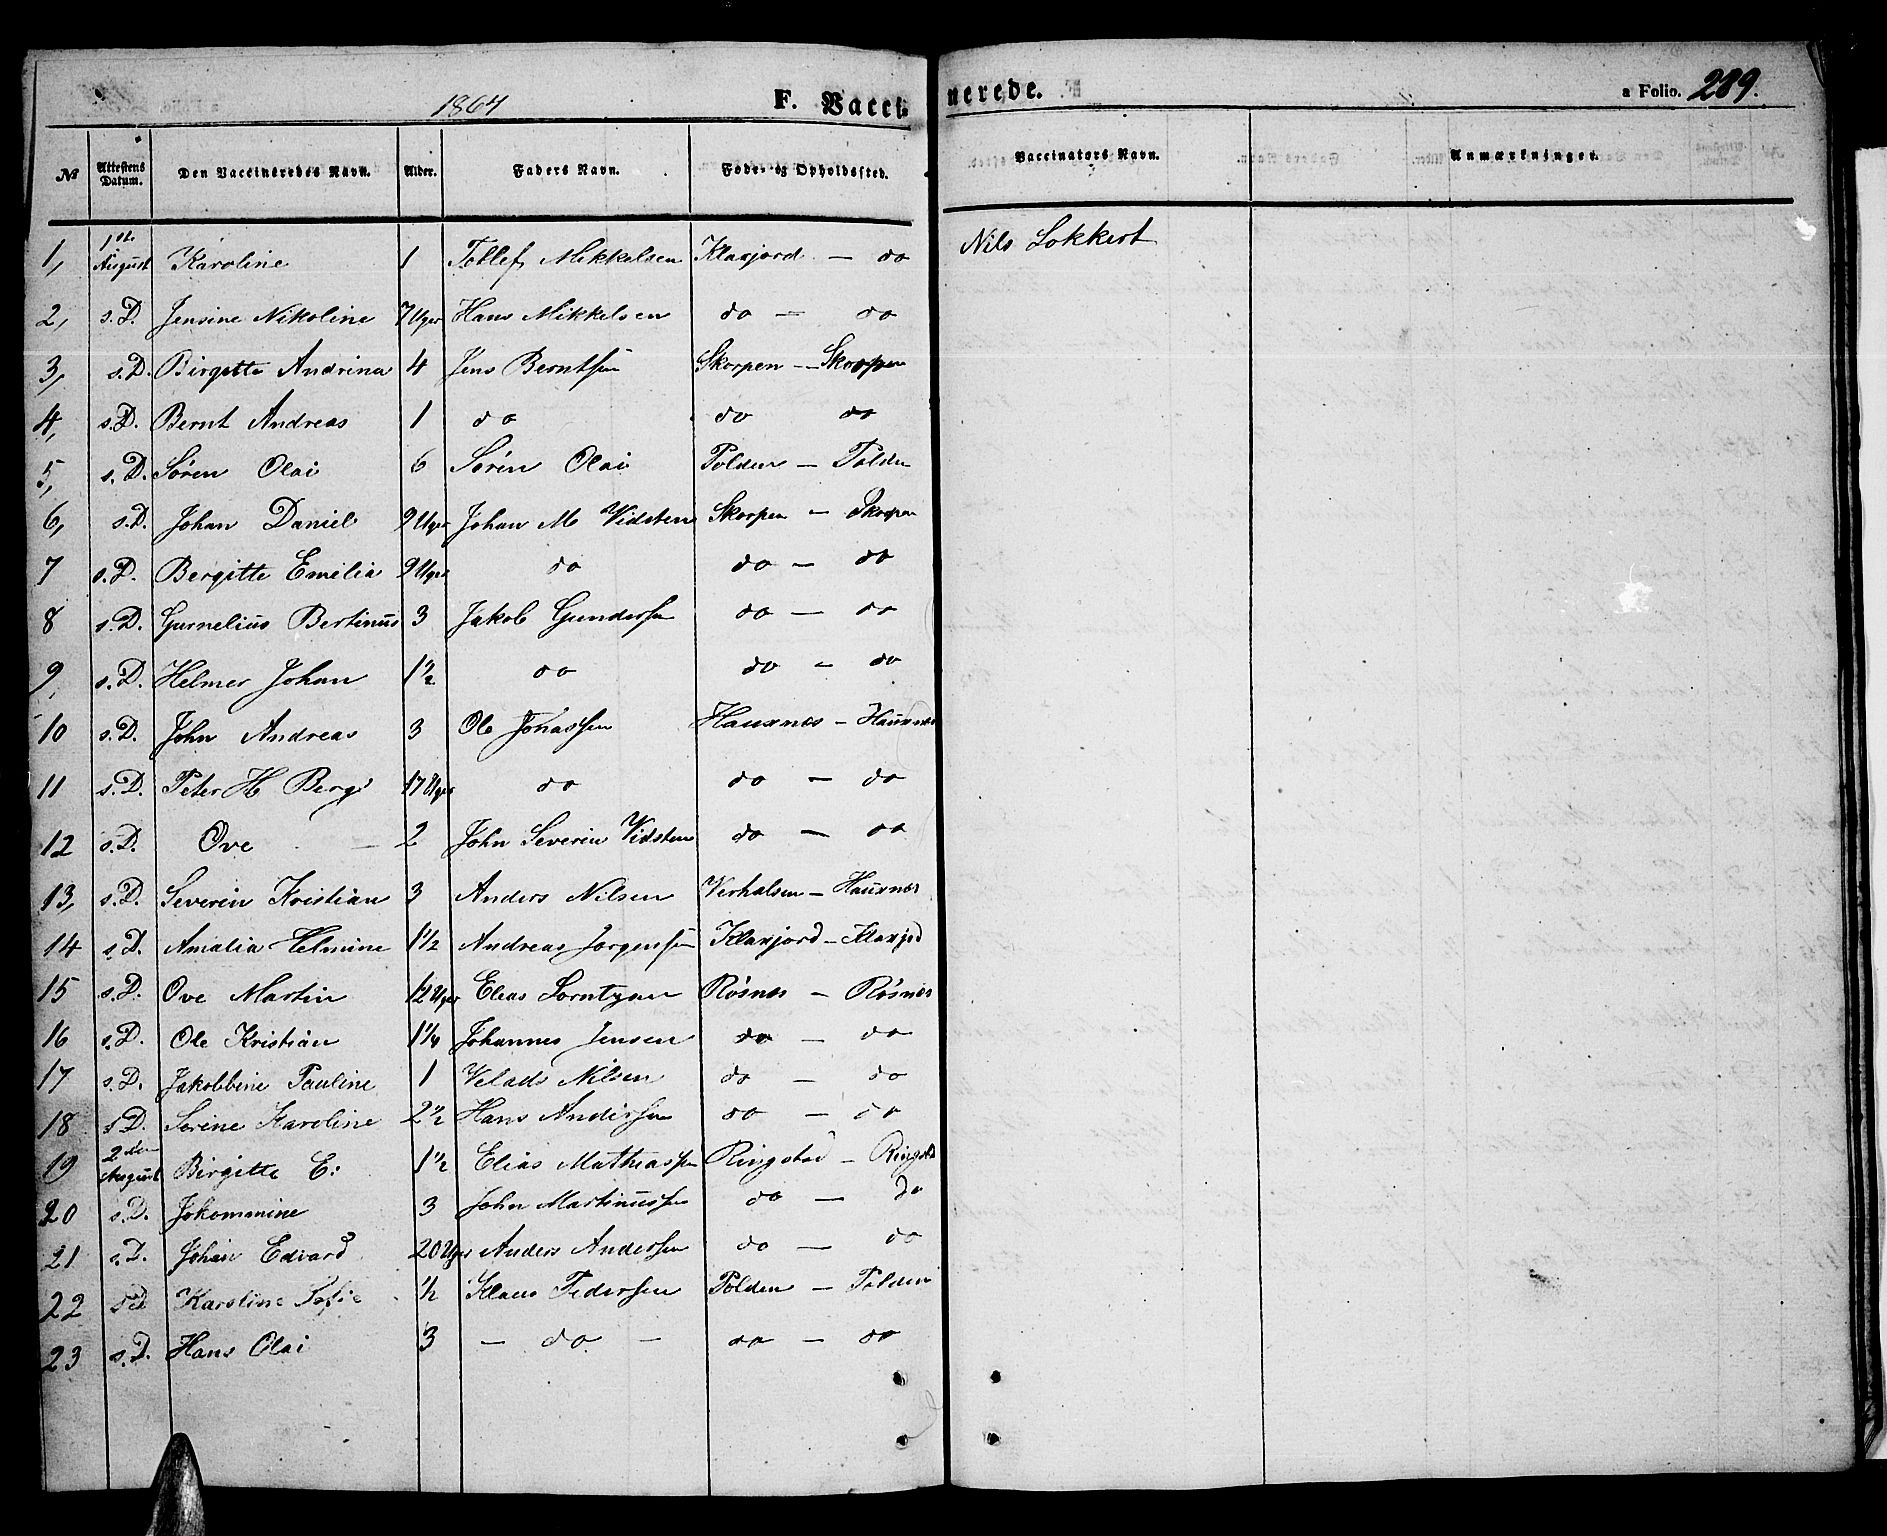 1864 F. Vaccinerede. a Folio. 289.
№ Attestens Datum. Den Vaccineredes Navn. Alder. Faders Navn. Føde- og Opholdssted. Vaccinators Navn. Anmærkninger.
1, 1ste August Karoline 1 Tollef Mikkelsen Klaxjord — do Nils Lokkert
2, s.D. Jensine Nikoline 7 Uger Hans Mikkelsen do — do
3, s.D. Birgitte Andrina 4 Jens Berntsen Skorpen — Skorpen
4, s.D. Bernt Andreas 1 do do do
5, s.D. Søren Olai 6 Sørin Olai Polden — Polden
6, s.D. Johan Daniel 9 Uger Johan M Vidsten Skorpen — Skorpen
7 s.D. Bergitte Emilia 9 Uger do do — do
8 s.D. Gurnelius Bertinus 3 Jakob Gundersen do — do
9, s.D. Helmer Johan 1½ do do — do
10 s.D. John Andreas 3 Ole Jonassen Hauxnæs — Hauxnæs
11 s.D. Peter H Berg 17 Uger do do — do
12 s.D. Ove 2 John Severin Vidsten do — do
13, s.D. Severin Kristian 3 Anders Nilsen Verhalsen — Hauxnæs
14 s.D. Amalia Helmine 1½ Andreas Jørgensen Klaxjord — Klaxjod
15 s.D. Ove Martin 12 Uger Elias Lorntzen Røsnes — Røsnes
16 s.D. Ole Kristian 1¼ Johannes Jensen do — do
17 s.D. Jakobbine Pauline 1 Velads Nilsen do — do
18 s.D. Serine Karoline 2½ Hans Andersen do — do
19 2den August Birgitte E: 1½ Elias Mathiassen Ringstad — Ringstad
20 s.D. Jokommine 3 John Martinussen do — do
21 s.D. Johan Edvard 20 Uger Anders Andersen do — do
22 s.D. Karoline Sofie ½ Klaus Pedersen Polden — Polden
23 s.D. Hans Olai 3 — do — do — do